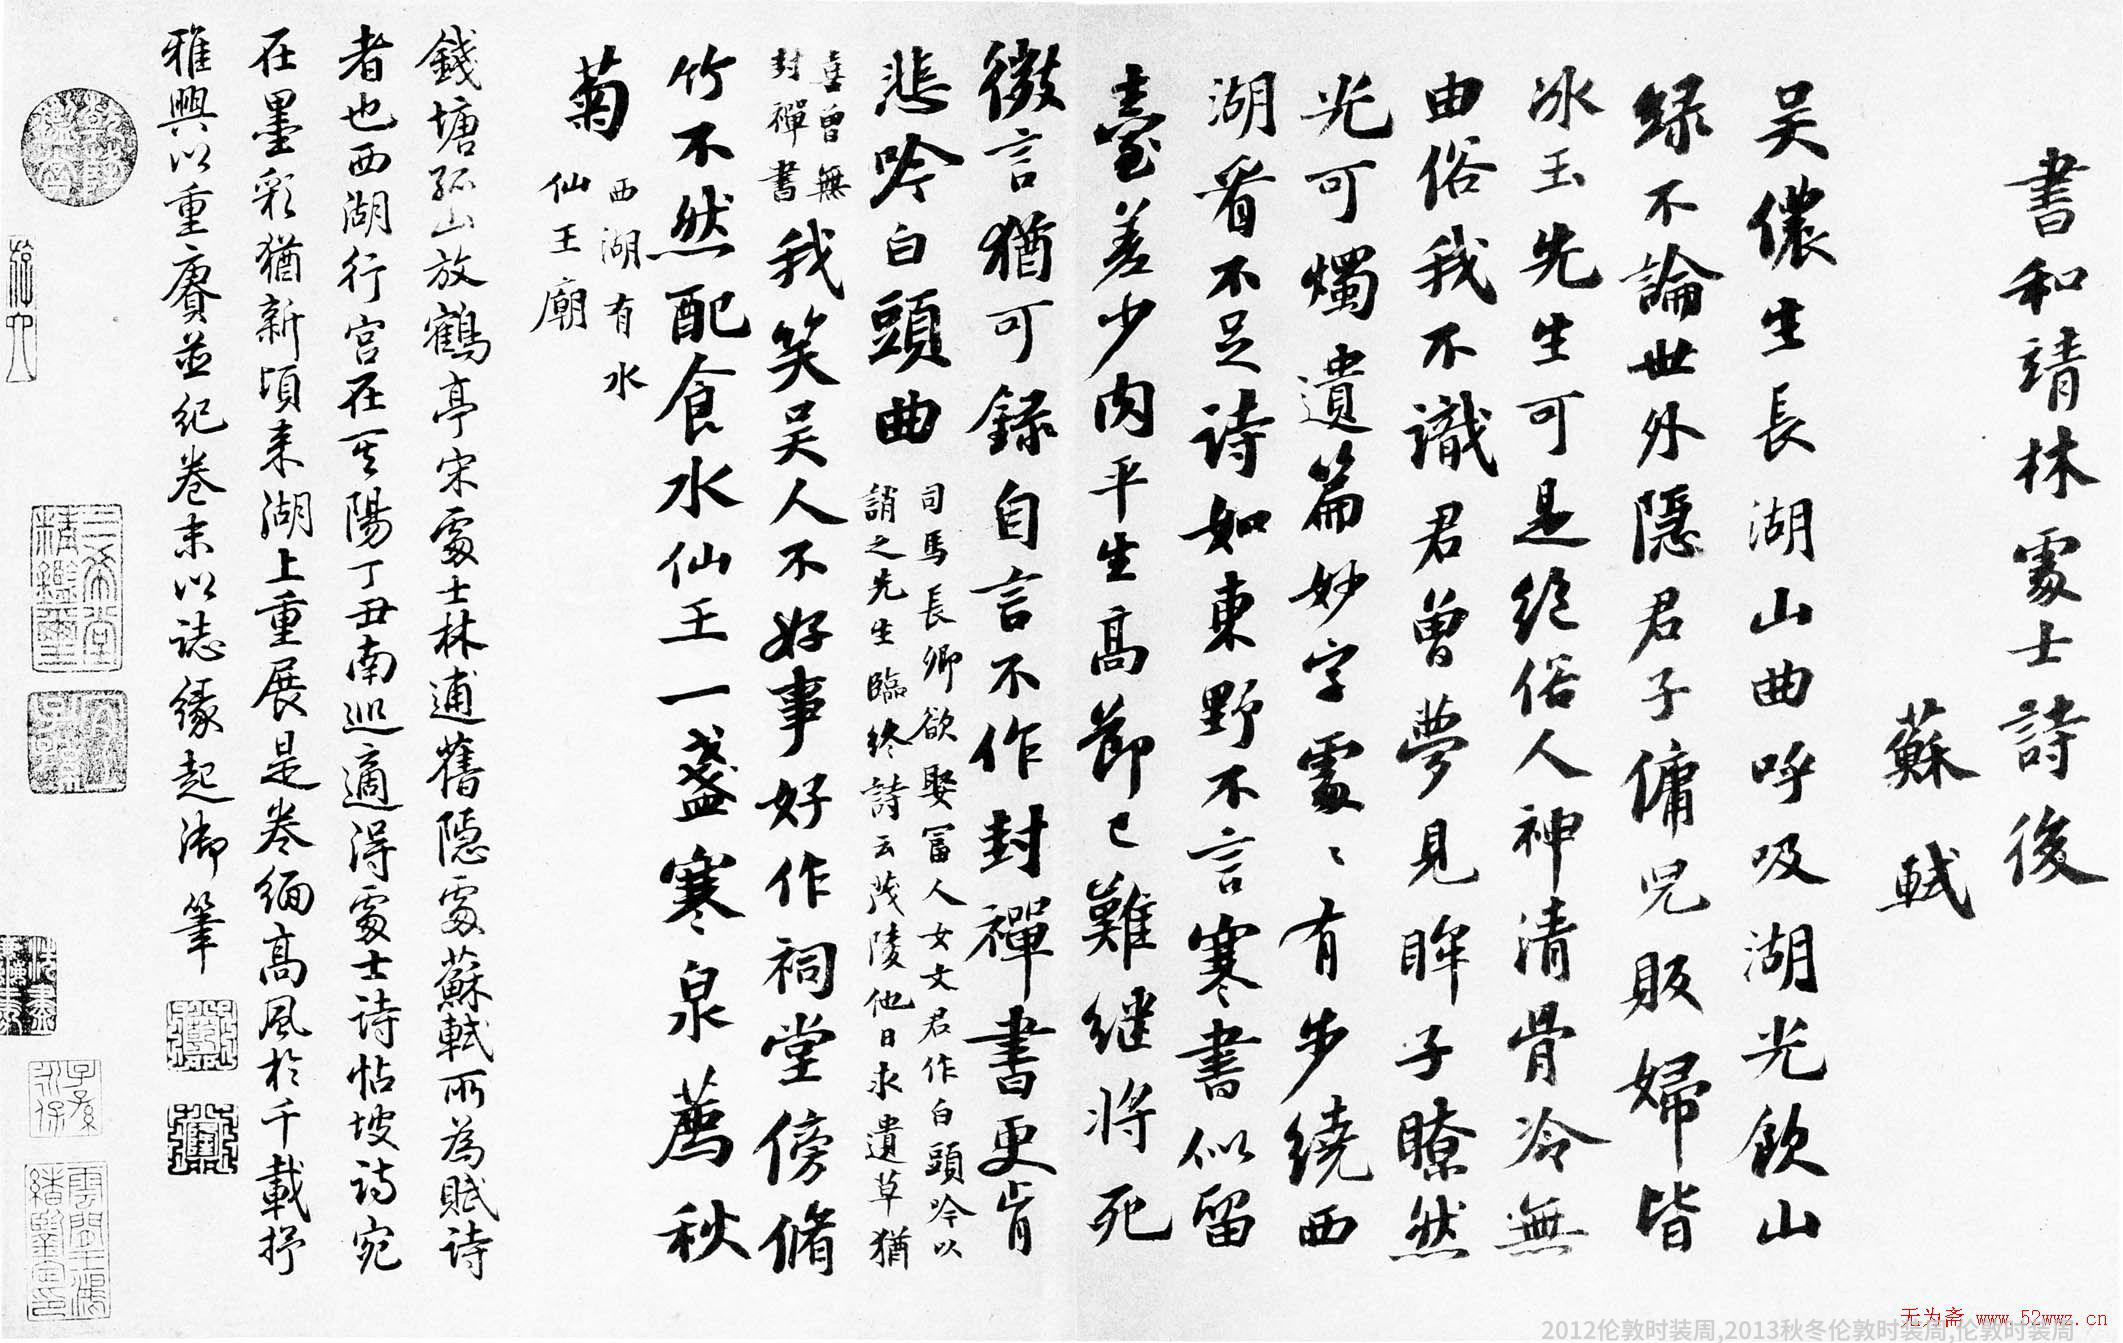 書和靖林處士詩後
蘇軾
吴儂生長湖山曲呼吸湖光飲山
緑不論世外隱君子傭兒販婦皆
冰玉先生可是絕俗人神清骨冷無
由俗我不識君曾夢見眸子瞭然
光可燭遺篇妙字處〻有步繞西
湖看不足詩如東野不言寒書似留
臺差少肉平生高節已難繼將死
微言猶可録自言不作封禪書更肯
悲吟白頭曲
司馬長卿欲娶富人女文君作白頭吟以
誚之先生臨終詩云茂陵他日求遺草猶
喜曾無
封禪書
我笑吴人不好事好作祠堂傍脩
竹不然配食水仙王一盞寒泉薦秋
菊
西湖有水
仙王廟
錢塘孤山放鶴亭宋處士林逋舊隱處蘇軾所為賦詩
者也西湖行宫在其陽丁丑南巡適得處士詩帖坡詩宛
在墨彩猶新頃来湖上重展是卷緬高風於千載抒
雅興以重賡並紀卷末以誌緣起御筆
三希堂
精鑑璽
宜子孫
子孫
永保
无为斋 www.52wwz.cn
2012伦敦时装周,2013秋冬伦敦时装周,伦敦时装周